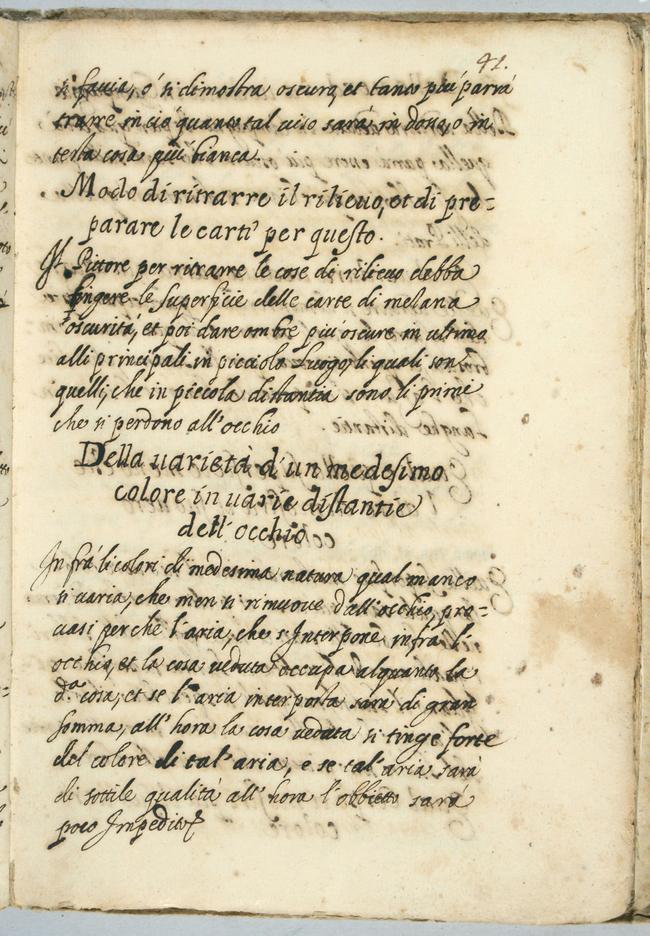 41.
si faccia, ó si dimostra oscura, et tanto piú parrá
trarre in ció quanto tal viso sará in dosso, ó in
testa cosa piú bianca.
Modo di ritrarre il rilieuo, et di pre=
parare le carti per questo.
Il Pittore per ritrarre le cose di rilieuo debba
tingere le superficie delle carte di mezana
oscuritá, et poi dare ombre piu oscure in ultimo
alli principali in picciolo luogo, li quali son
quelli, che in piccola distantia sono li primi
che si perdono all'occhio
Della uarietá d'un medesimo
colore in uarie distantie
dell'occhio
In frá li colori di medesima natura qual manco
si uaria, che men si rimuoue dall'occhio, pro=
uasi perche l'aria, che s'Interpone infra l'
occhio, et la cosa ueduta occupa alquanto la
d.a cosa, et se l'aria interposta sará di gran
somma, all'hora la cosa ueduta si tinge forte
del colore di tal'aria, e se tal'aria sará
di sottile qualitá all'hora l'obbietto sará
poco Impedito